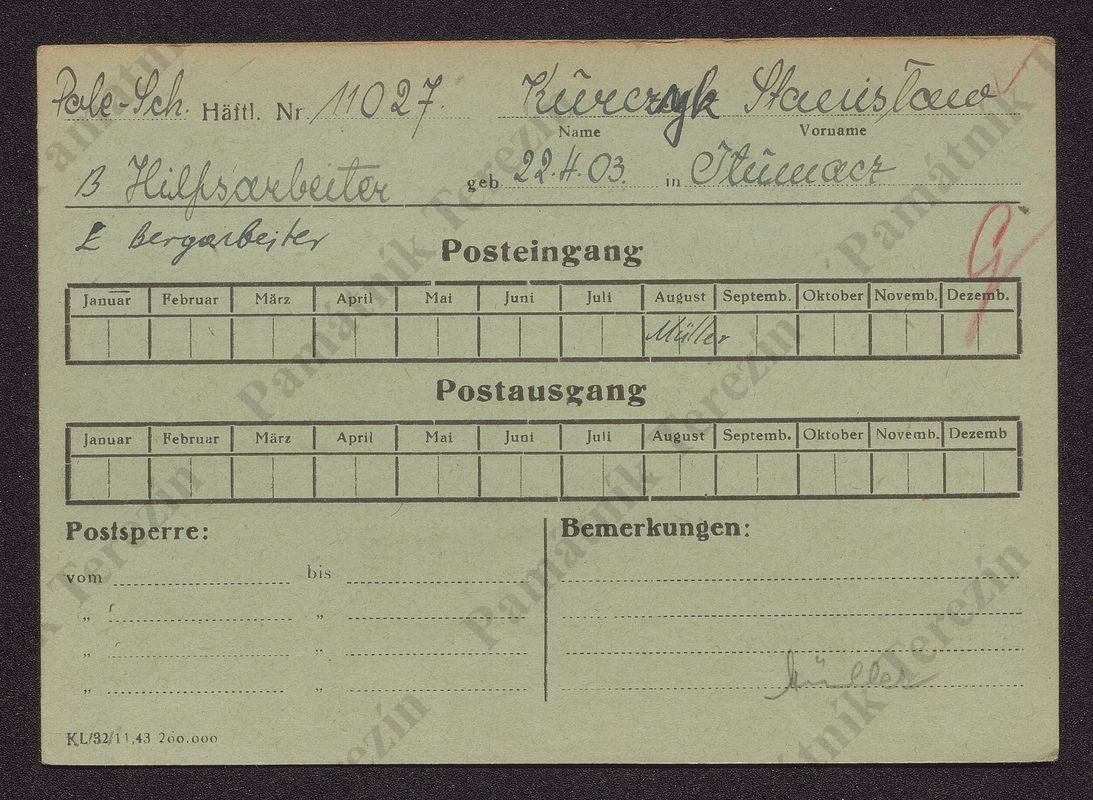 Pole-Sch. Häftl. Nr. 11027. Kurczyk Stanisław
Name Vorname
B Hilfsarbeiter geb 22.4.03. in Itumacz
E Bergarbeiter
Posteingang
Januar Februar März April Mai Juni Juli August Septemb. Oktober Novemb. Dezemb.
Müller
Postausgang
Januar Februar März April Mai Juni Juli August Septemb. Oktober Novemb. Dezemb
Postsperre: Bemerkungen:
vom bis
„ „
„ „
„ „
Müller
KL/32/11.43 200.000
Památník Terezín